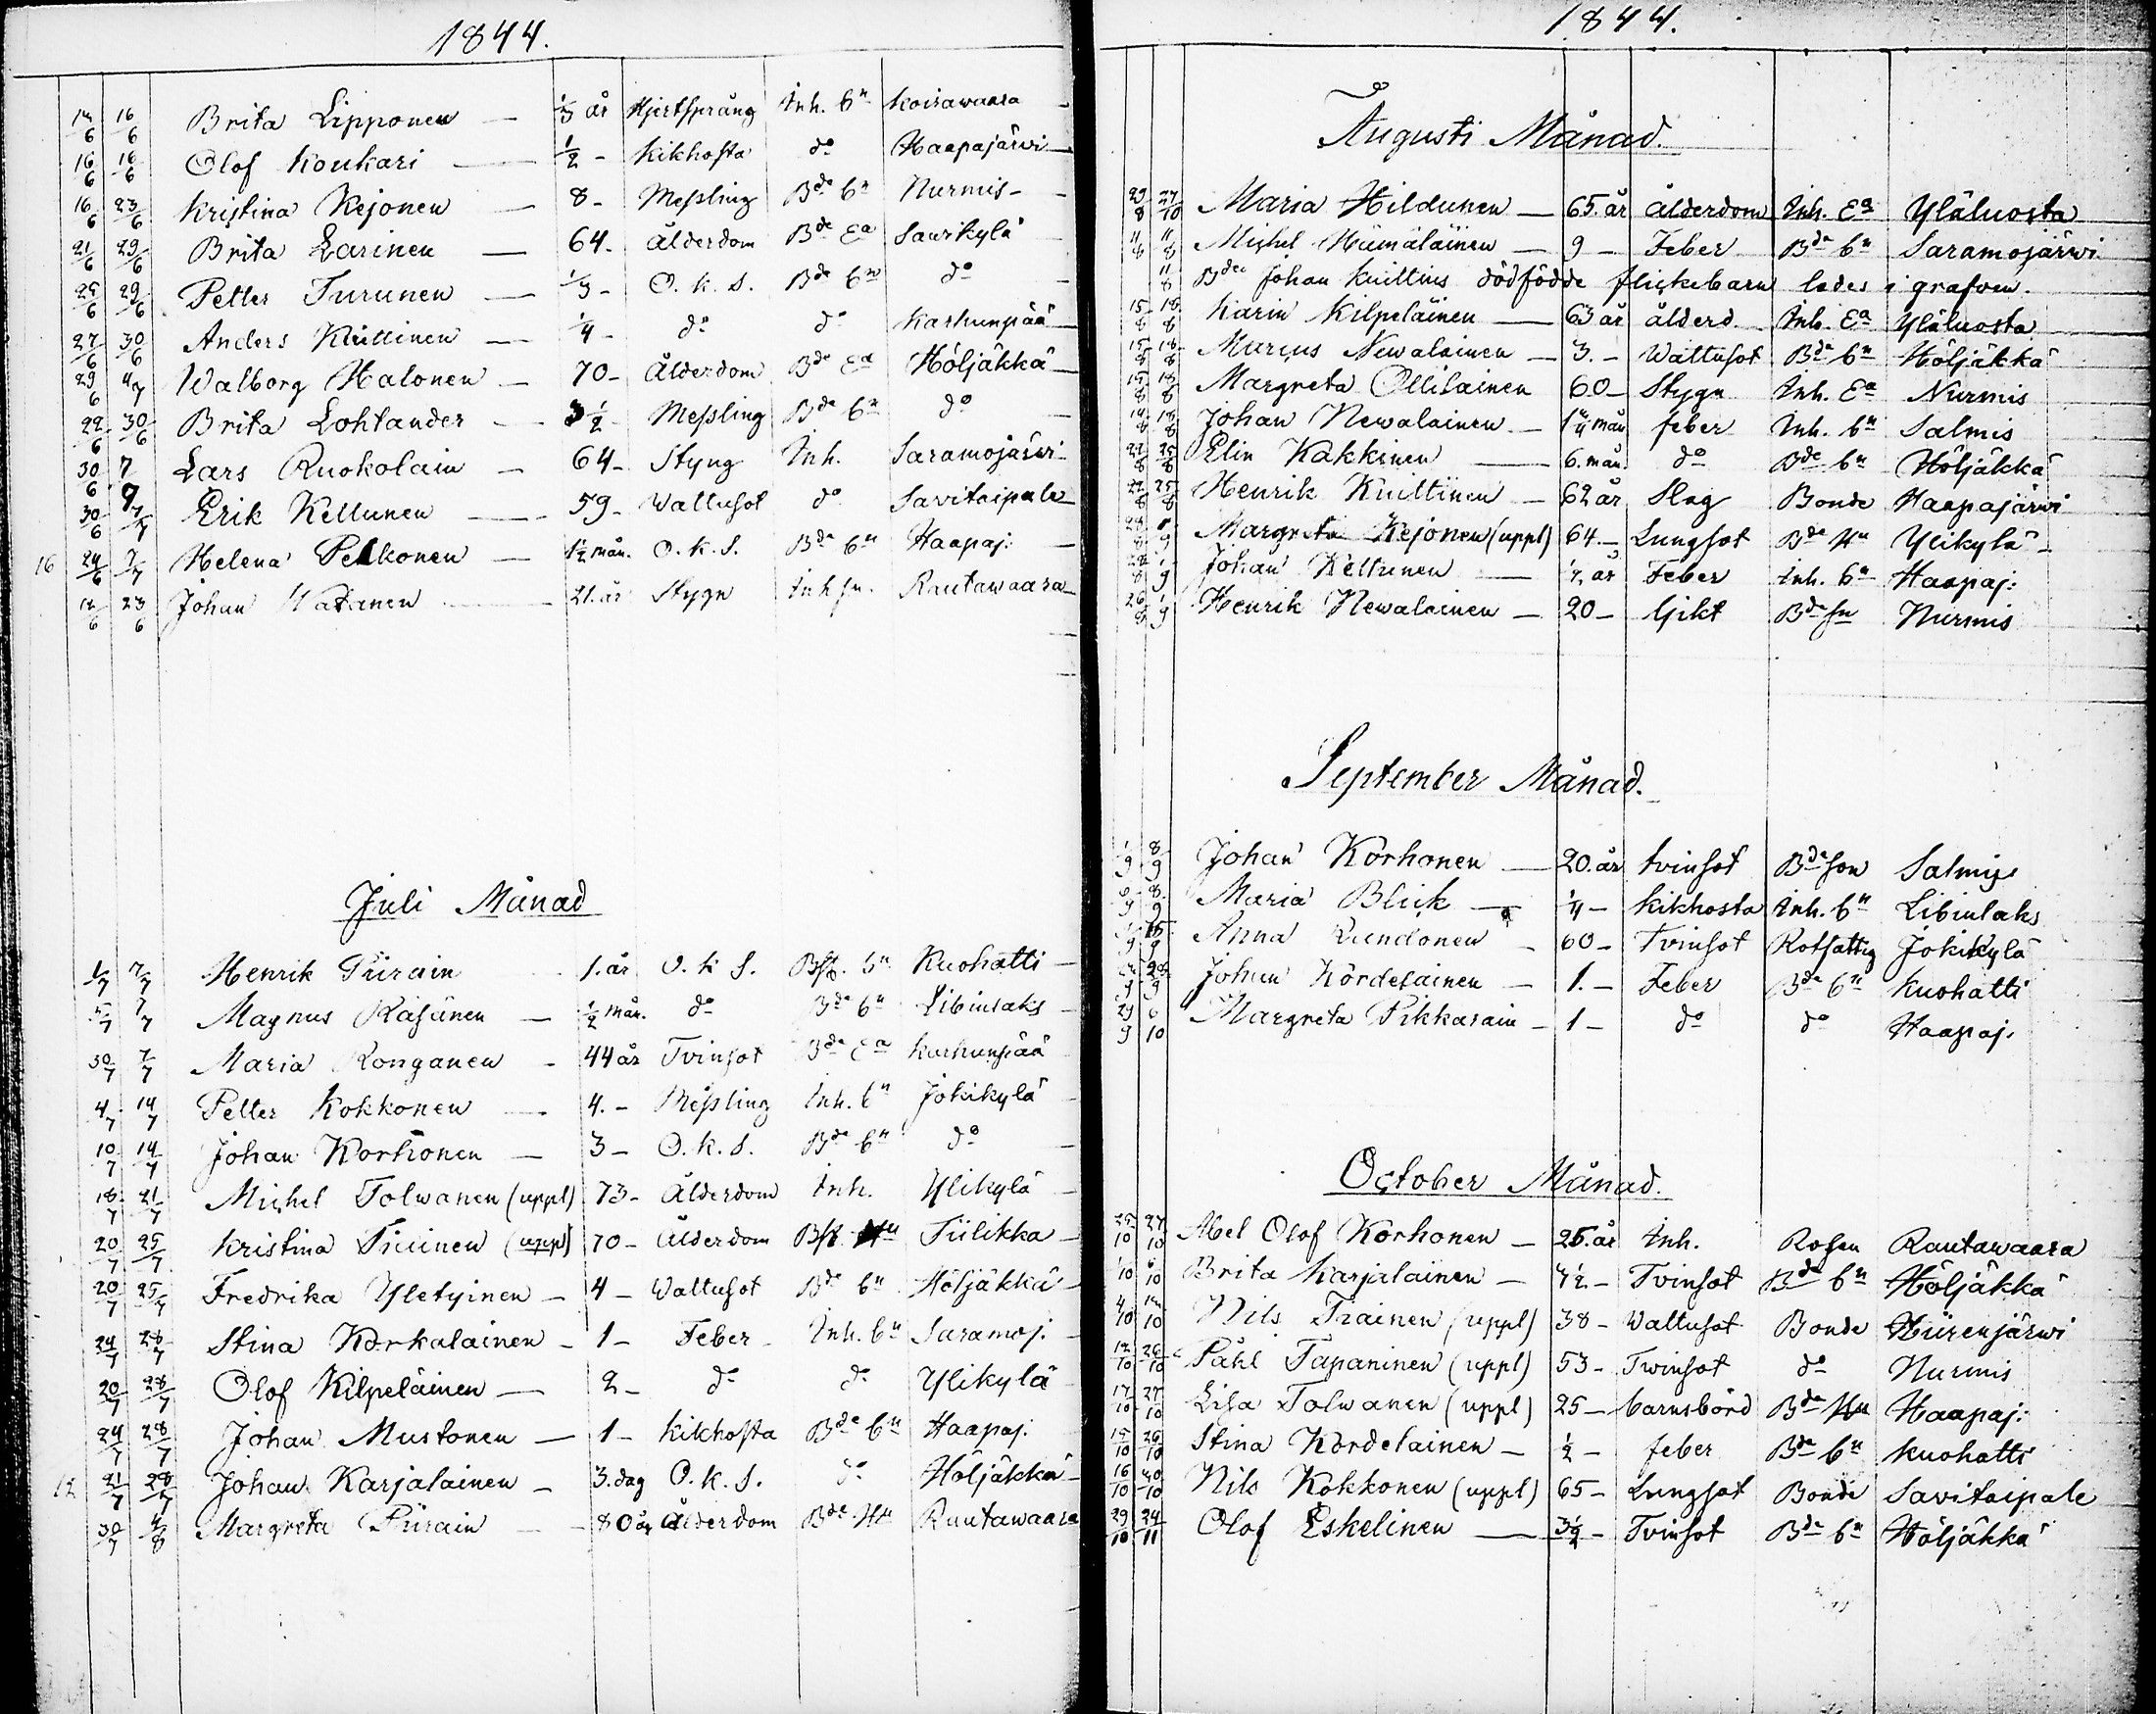 1844.
14/6 16/6 Brita Lipponen — 1/3 år Hjertsprång Inh. bn Koirawaara
16/6 16/6 Olof Koukari — 1/2 - Kikhosta do Haapajärwi
16/6 23/6 Kristina Kejonen — 8 - Messling Bde bn Nurmis
21/6 29/6 Brita Larinen — 64. Ålderdom Bde Ea Saurikylä
25/6 29/6 Petter Turunen — 1/3 - O. k. S. Bde bn do
27/6 30/6 Anders Kuittinen — 1/4 - do do Karhunpää
29/6 4/7 Walborg Halonen — 70 - Ålderdom Bde Ea Höljäkkä
22/6 30/6 Brita Lohtander — 3 1/2 Messling Bde bn do
30/6 7 Lars Ruokolain — 64 - Styng Inh. Saramojärwi
30/6 7/7 Erik Kettunen — 59 - Wattusot do Savitaipale
16 24/6 7/7 Helena Pelkonen — 1 1/2 mån. O. k. S. Bde bn Haapaj:
12/6 23/6 Johan Watanen 21. år Stygn Inh sn. Rautawaara
Juli Månad
1/7 7/7 Henrik Piirain 1. år O. k S. Bst. bn Kuohatti
5/7 7/7 Magnus Räsänen — 1/2 mån. do Bde bn Libinlaks
30/7 7/7 Maria Ronganen - 44 år Tvinsot Bde Ea Karhunpää
4/7 14/7 Petter Kokkonen — 4. - Messling Inh. bn Jokikylä
10/7 14/7 Johan Korhonen — 3 - O. k. S. Bde bn do
18/7 21/7 Michel Tolwanen (uppl) 73 - Ålderdom Inh. Ylikylä
20/7 25/7 Kristina Tiainen (uppl) 70 - Ålderdom Bst. Hu Tiilikka
20/7 25/7 Fredrika Yletyinen — 4 - Wattusot Bde bn Höljäkkä
24/7 28/7 Stina Korkalainen - 1 - Feber Inh. bn Saramoj.
20/7 28/7 Olof Kilpeläinen — 2 - do do Ylikylä
24/7 28/7 Johan Mustonen — 1 - Kikhosta Bde bn Haapaj.
12 21/7 28/7 Johan Karjalainen - 3. dag O. k. S. do Höljäkkä
30/7 4/8 Margreta Piirain - 80 år Ålderdom Bde Hu Rautawaara
1844.
Augusti Månad.
29/8 27/10 Maria Hildunen — 65. år Ålderdom Inh. Ea Yläluosta
11/8 11/8 Michel Hämäläinen — 9 - Feber Bde bn Saramojärwi
11/8 Bden Johan Kuittins dödfödde flickebarn lades i grafven.
15/8 18/8 Karin Kilpeläinen — 63 år ålderd. Inh. Ea Yläluosta
15/8 18/8 Marcus Newalainen — 3. - Wattusot Bde bn Höljäkkä
15/8 18/8 Margreta Ollilainen 60 - Stygn Inh. Ea Nurmis
14/8 18/8 Johan Newalainen — mån feber Inh. bn Salmis
22/8 25/8 Elin Kakkinen — 6. mån. do Bde bn Höljäkkä
22/8 25/8 Henrik Kuittinen — 62 år Slag Bonde Haapajärwi
Margreta Kejonen (uppl) 64. - Lungsot Bde Hu Ylikylä
Johan Kettunen — 1/2 år Feber Inh. bn Haapaj:
26/8 1/9 Henrik Newalainen — 20 - Gikt Bde sn Nurmis
September Månad.
1/9 8/9 Johan Korhonen — 20. år tvinsot Bde son Salmis
Maria Blick — 1/4 - Kikhosta Inh. bn Libinlaks
Anna - 60 - Tvinsot Rotfattig Jokikylä
Johan Kördeläinen — 1. - Feber Bde bn Kuohatti
29/9 6/10 Margreta Pikkarain - 1 - do do Haapaj.
October Månad.
25/10 27/10 Abel Olof Korhonen — 25. år Inh. Rosen Rautawaara
Brita Karjalainen — 1/2 - Tvinsot Bde bn Höljäkkä
Nils Tiainen (uppl) 38 - Wattusot Bonde Hiirenjärwi
12/10 26/10 Påhl Tapaninen (uppl) 53 - Twinsot do Nurmis
17/10 27/10 Lisa Tolwanen (uppl) 25 - barnsbörd Bde Hu Haapaj:
15/10 26/10 Stina Kördeläinen — 1/2 - feber Bde bn Kuohatti
16/10 20/10 Nils Kokkonen (uppl) 65 - Lungsot Bonde Savitaipale
29/10 24/11 Olof Eskelinen — 3 1/2 - Tvinsot Bde bn Höljäkkä